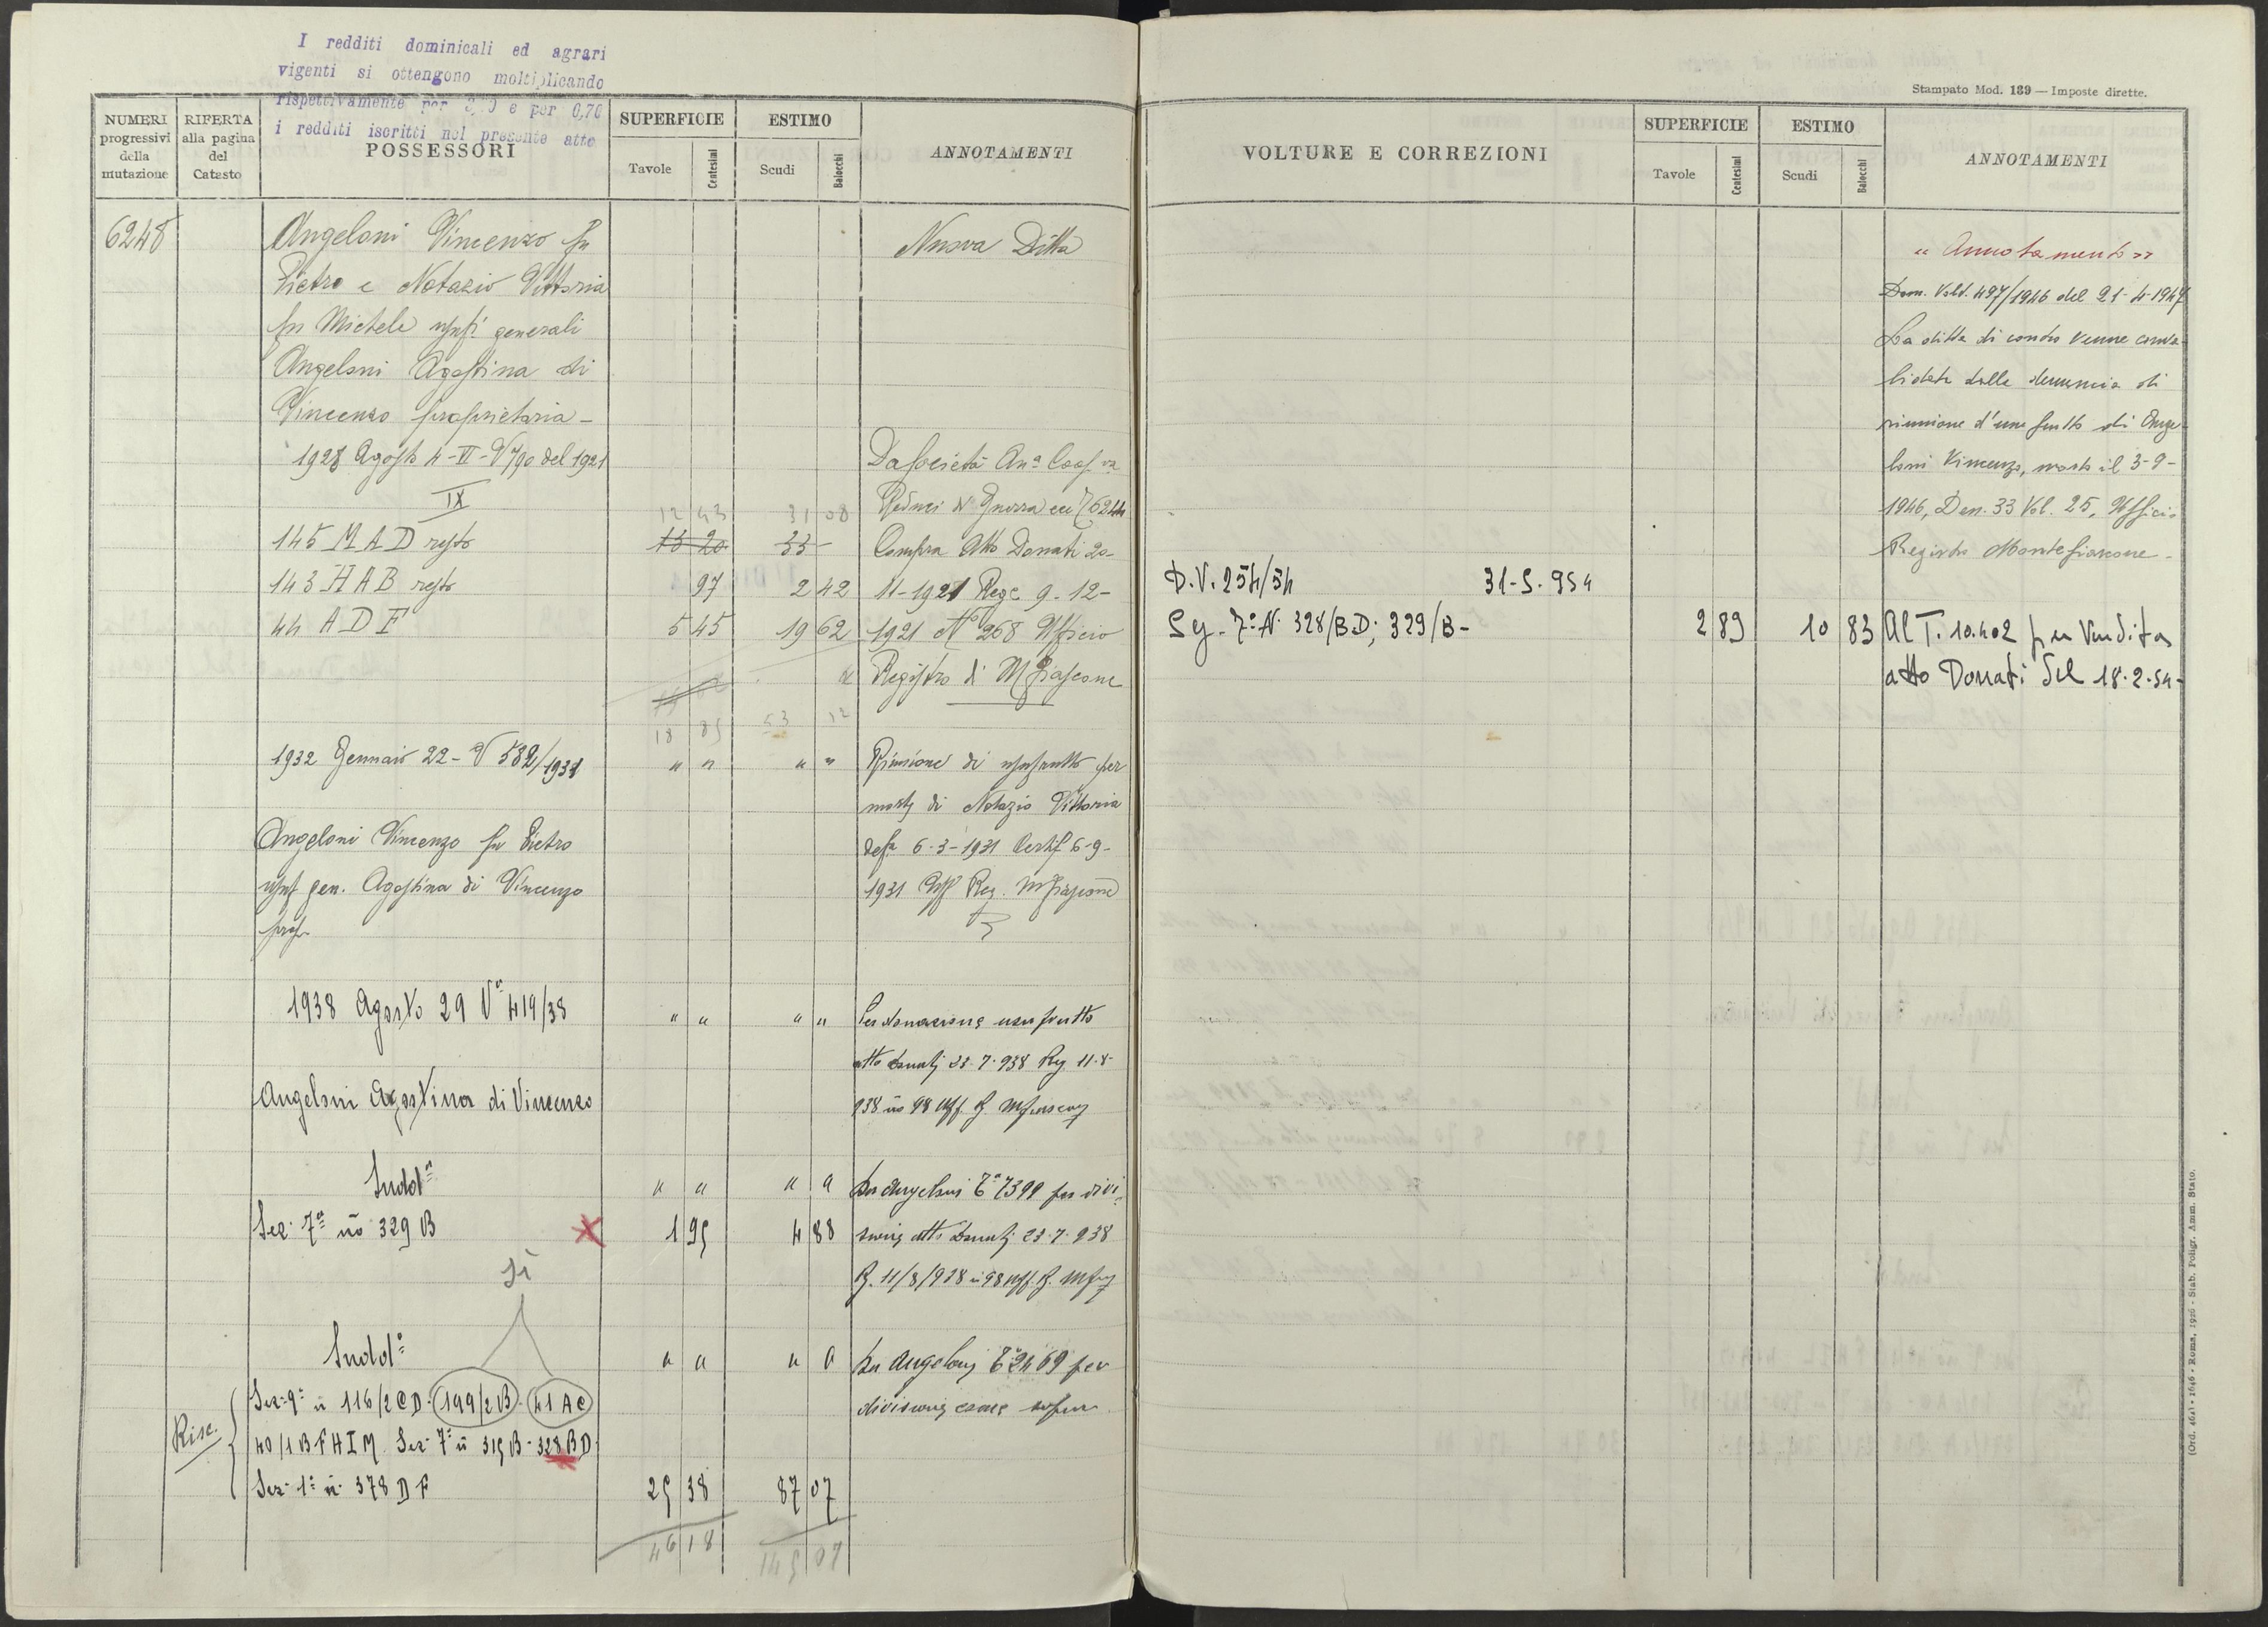 I redditi dominicali ed agrari
vigenti si ottengono moltiplicando
rispettivamente per e per 0,70
i redditi iscritti nel presente atto
NUMERI progressivi della mutazione
RIFERTA alla pagina del Catasto
POSSESSORI
SUPERFICIE
Tavole Centesimi
ESTIMO
Scudi Baiocchi
ANNOTAMENTI
6248
Angeloni Vincenzo fu
Pietro e Notazio Vittoria
fu Michele usuf. generali
Angeloni Agostina di
Vincenzo proprietaria -
1928 Agosto 4-VI-V 790 del 1921
IX
145 M A D resto
143 H A B resto
44 A D F
12 43 31 08
15 20 33
97 2 42
5 45 19 62
18 85 53 12
Nuova Ditta
Da Società An.a Coop.va
Reduci di Guerra 6244
Compra Atto Donati 20-
11-1921 Rege 9-12-
1921 No 268 Ufficio
Registro di Mfiascone
1932 Gennaio 22 - V 582/1931 " " " "
Riunione di usufrutto per
morte di Notazio Vittoria
6-3-1931 Certif 6-9-
1931 Uff Reg. Mfiascone
Angeloni Vincenzo fu Pietro
usuf gen. Agostina di Vincenzo
prop.
1938 Agosto 29 Va 419/38 " " " "
Per donazione usufrutto
atto Donati 23.7.938 Reg 11.8
938 no 98 Uff. R Mfiascone
Angeloni Agostina di Vincenzo
Sudda " " " "
Sez. 7a no 329 B X 1 95 4 88
Da Angeloni Ta 7399 per divi
sione atto Donati 23.7.938
R. 11/8/938 n 98 Uff. R.
Sì
Sudda " " " "
Da Angeloni Ta 2469 per
divisione come sopra.
Risc.
Sez. 9a n 116/2 C D. 199/2 B. 41 A C
40/1 B F H I M. Sez. 7a n 315 B - 328 B D
Sez. 1a n. 378 D F 25 38 87 07
46 18 145 07
Stampato Mod. 189 — Imposte dirette.
VOLTURE E CORREZIONI
SUPERFICIE
Tavole Centesimi
ESTIMO
Scudi Baiocchi
ANNOTAMENTI
« Annotamento »
Dom. Volt. 497/1946 del 21-4-1947
La ditta di contro venne conva-
lidata dalla denuncia di
riunione d'usufrutto di Ange-
loni Vincenzo, morto il 3-9-
1946, Den. 33 Vol. 25, Ufficio
Registro Montefiascone -
D.V. 254/54 31-5-954
Sez. 7a N. 328/B.D; 329/B - 2 89 10 83
Al T. 10.402 per Vendita
atto Donati del 18.2.54 -
(Ord. 464) - 1646 - Roma, 1926 - Stab. Poligr. Amm. Stato.